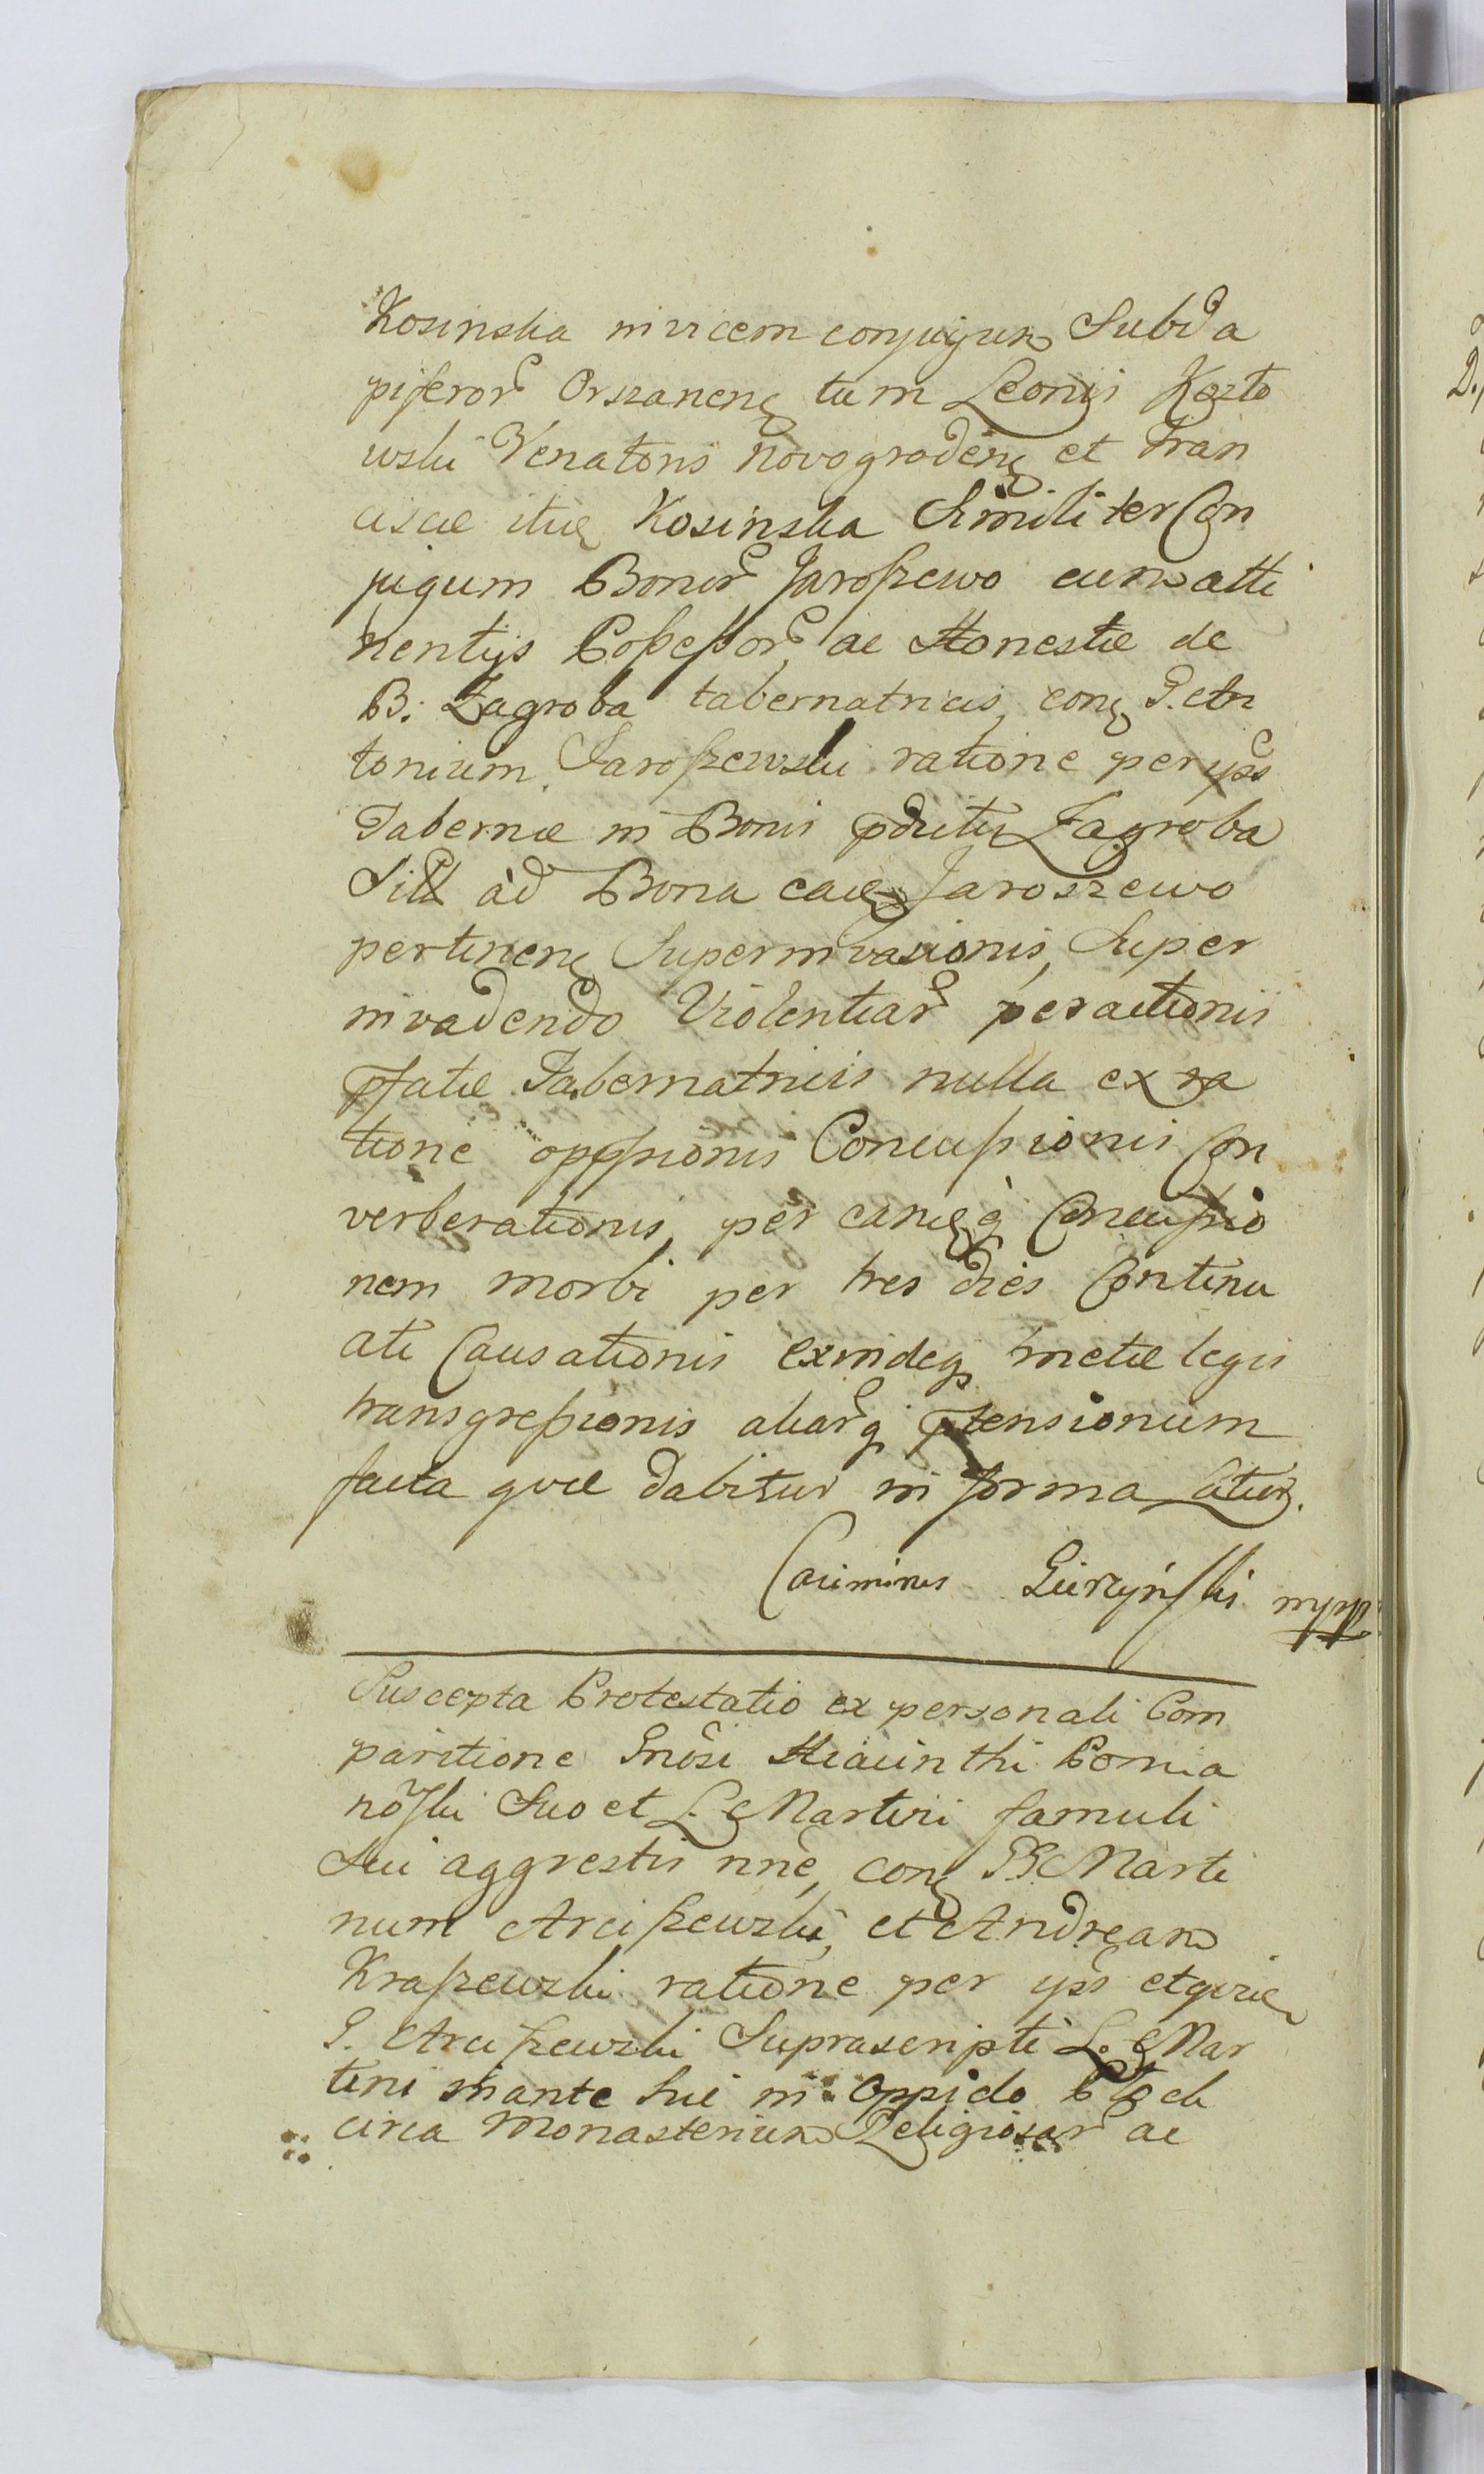 Kosinska invicem conjugum Subda
piferor Orszanen tum Leonis Kozło
wski Venatoris novogroden et Fran
ciscæ itue Kosinska Similiter Con
jugum Bonor Jaroszewo cum atti
nentijs Possessor, ac Honestæ de
B: Zagroba tabernatricis, con G. An
tonium Jaroszewski ratione per ipss
Tabernæ in Bonis pductis Zagroba
Sill ad Bona eae Jaroszewo
pertinen Superinvasionis, Super
invadendo Violentiar peractionis
pfatæ Tabernatricis nulla ex ra
tione oppssionis Concussionis Con
verberationis, per eamq Concussio
nem morbi per tres dies Continu
ati Causationis exindeq mctæ legis
transgressionis aliarq ptensionum
facta quæ dabitur in forma latior.
Casimirus mpp
Suscepta Protestatio ex personali Com
paritione Gnosi Hiacinthi Ponia
toski Suo et L. Martini famuli
Sui aggrestis nne, con GG Marti
num Arciszewski, et Andream
Kraszewski ratione per ipss etqvie
G. Arciszewski Suprascripti L. Mar
tini mante Sui in Oppido Płock
circa Monasterium Religiosar ac